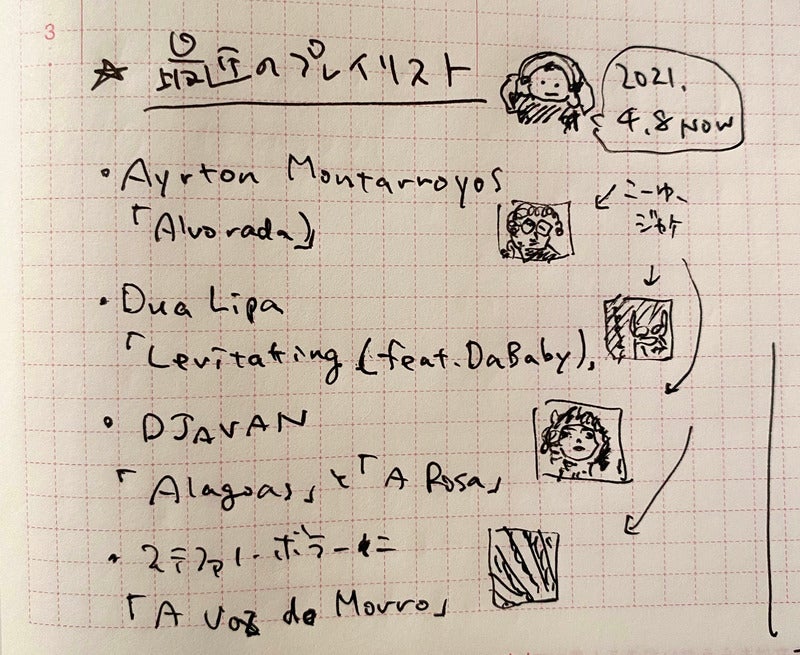 3
☆ 最近のプレイリスト
2021.
4.8 NOW
・Ayrton Montarroyos
「Alvorada」
こーゆー
ジャケ
・Dua Lipa
「Levitating (feat.DaBaby)」
・DJAVAN
「Alagoas」と「A Rosa」
・ステファノ・ボラーニ
「A Voz do Morro」